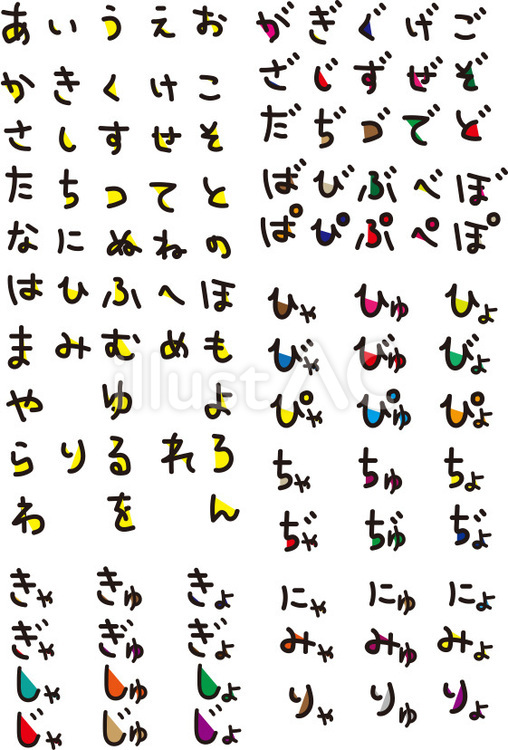 あいうえお
かきくけこ
さしすせそ
たちつてと
なにぬねの
はひふへほ
まみむめも
や ゆ よ
らりるれろ
わ を ん
がぎぐげご
ざじずぜぞ
だぢづでど
ばびぶべぼ
ぱぴぷぺぽ
ひゃ ひゅ ひょ
びゃ びゅ びょ
ぴゃ ぴゅ ぴょ
ちゃ ちゅ ちょ
ぢゃ ぢゅ ぢょ
きゃ きゅ きょ
ぎゃ ぎゅ ぎょ
しゃ しゅ しょ
じゃ じゅ じょ
にゃ にゅ にょ
みゃ みゅ みょ
りゃ りゅ りょ
illustAC